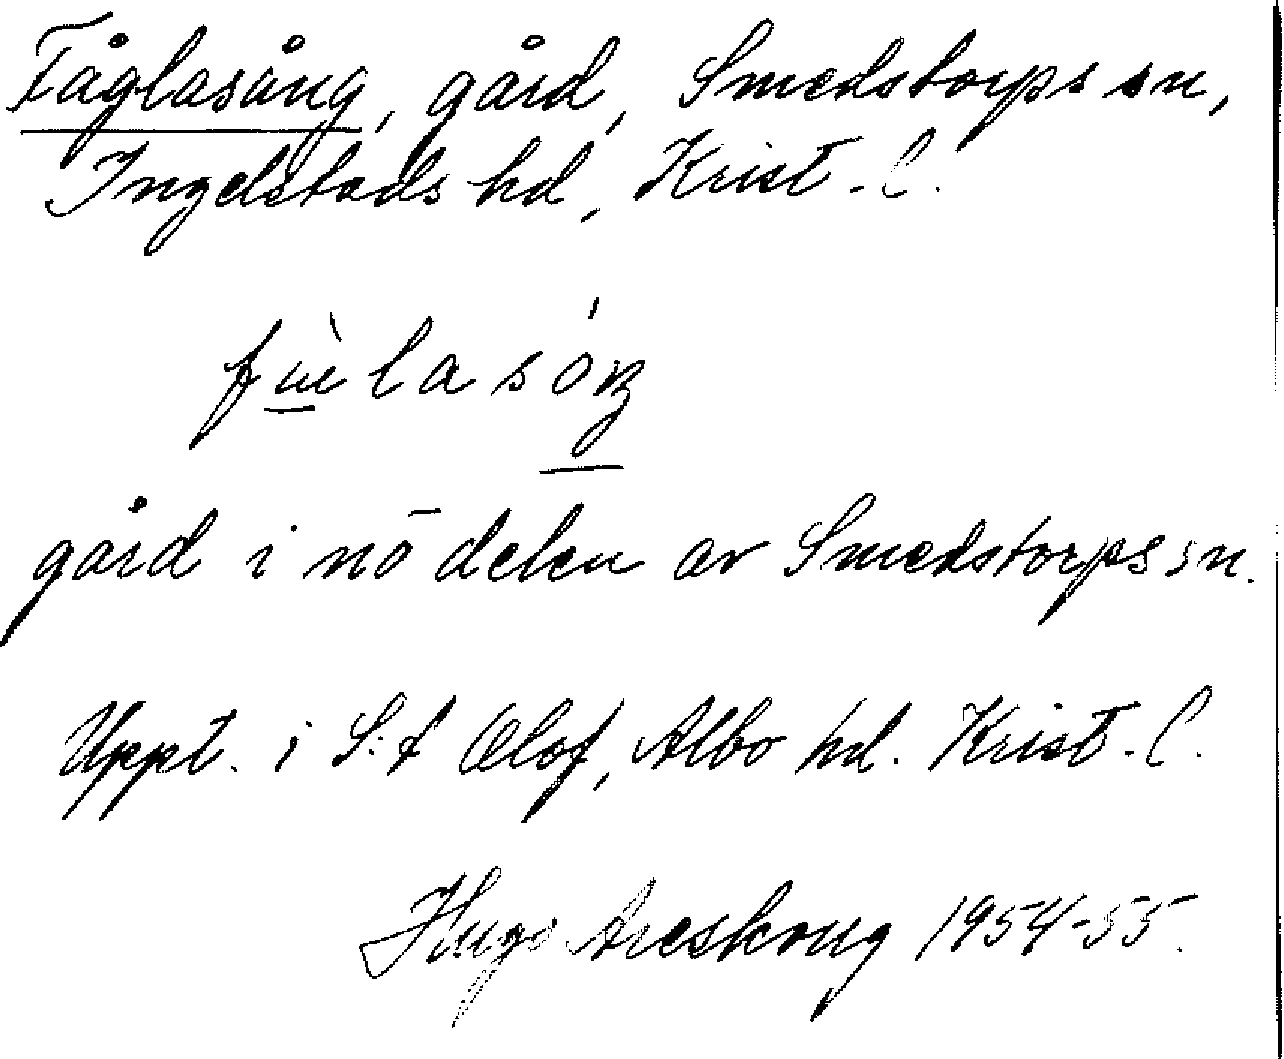 Fåglasång, gård, Smedstorps sn,
Ingelstads hd, Krist. l.
gård i nö delen av Smedstorps sn.
Uppt. i S:t Olof, Albo hd. Krist. l.
Hugo Areskoug 1954-55.